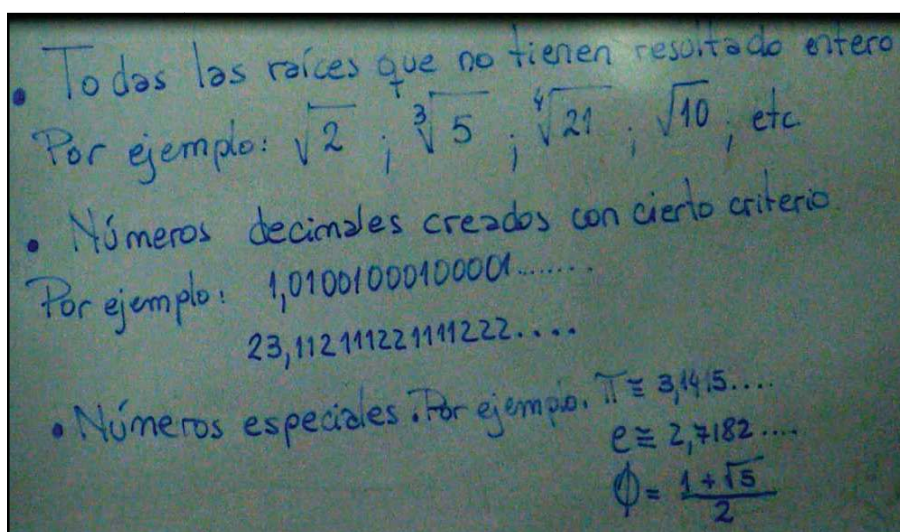 • Todas las raíces que no tienen resultado entero
Por ejemplo: √2 ; ∛5 ; ∜21 ; √10 ; etc.
• Números decimales creados con cierto criterio.
Por ejemplo: 1,01001000100001.......
23,112111221111222....
• Números especiales. Por ejemplo. π ≅ 3,1415....
e ≅ 2,7182....
ϕ = (1+√5)/2